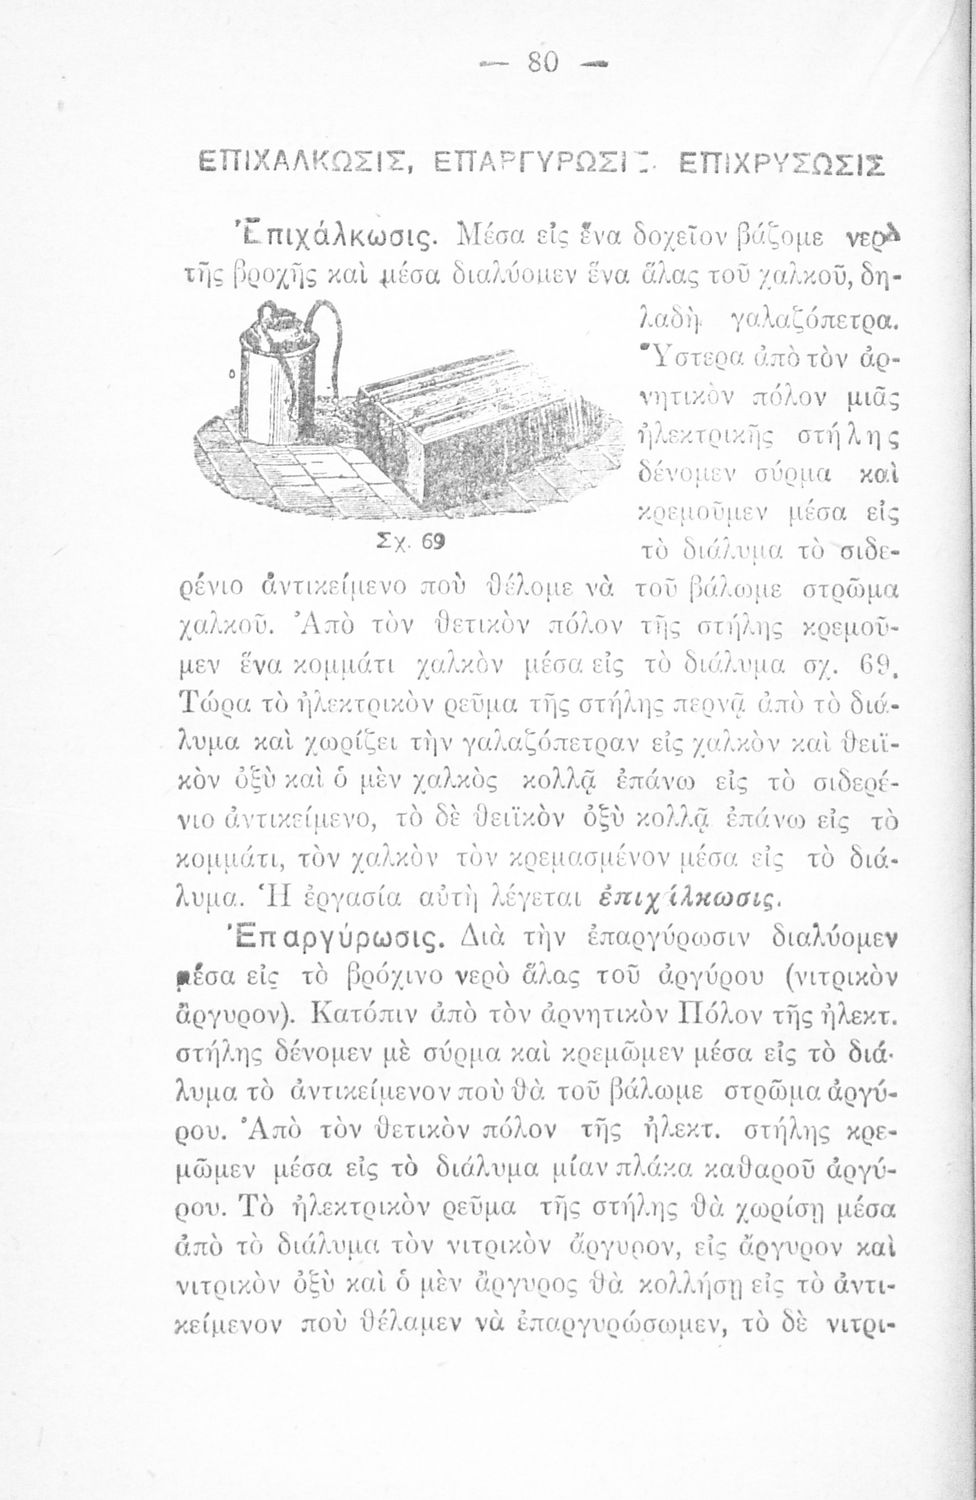 — 80 —
ΕΠΙΧΑΛΚΩΣΙΣ, ΕΠΑΡΓΥΡΩΣΙΣ. ΕΠΙΧΡΥΣΩΣΙΣ
Ἐπιχάλκωσις. Μέσα εἰς ἕνα δοχεῖον βάζομε νερὸ
τῆς βροχῆς καὶ μέσα διαλύομεν ἕνα ἅλας τοῦ χαλκοῦ, δη-
λαδὴ γαλαζόπετρα.
Ὕστερα ἀπὸ τὸν ἀρ-
νητικὸν πόλον μιᾶς
ἠλεκτρικῆς στήλης
δένομεν σύρμα καὶ
κρεμοῦμεν μέσα εἰς
τὸ διάλυμα τὸ σιδε-
Σχ. 69
ρένιο ἀντικείμενο ποὺ θέλομε νὰ τοῦ βάλωμε στρῶμα
χαλκοῦ. Ἀπὸ τὸν θετικὸν πόλον τῆς στήλης κρεμοῦ-
μεν ἕνα κομμάτι χαλκὸν μέσα εἰς τὸ διάλυμα σχ. 69.
Τώρα τὸ ἠλεκτρικὸν ρεῦμα τῆς στήλης περνᾷ ἀπὸ τὸ διά-
λυμα καὶ χωρίζει τὴν γαλαζόπετραν εἰς χαλκὸν καὶ θειϊ-
κὸν ὀξὺ καὶ ὁ μὲν χαλκὸς κολλᾷ ἐπάνω εἰς τὸ σιδερέ-
νιο ἀντικείμενο, τὸ δὲ θειϊκὸν ὀξὺ κολλᾷ ἐπάνω εἰς τὸ
κομμάτι, τὸν χαλκὸν τὸν κρεμασμένον μέσα εἰς τὸ διά-
λυμα. Ἡ ἐργασία αὐτὴ λέγεται ἐπιχάλκωσις.
Ἐπαργύρωσις. Διὰ τὴν ἐπαργύρωσιν διαλύομεν
μέσα εἰς τὸ βρόχινο νερὸ ἅλας τοῦ ἀργύρου (νιτρικὸν
ἄργυρον). Κατόπιν ἀπὸ τὸν ἀρνητικὸν Πόλον τῆς ἠλεκτ.
στήλης δένομεν μὲ σύρμα καὶ κρεμῶμεν μέσα εἰς τὸ διά-
λυμα τὸ ἀντικείμενον ποὺ θὰ τοῦ βάλωμε στρῶμα ἀργύ-
ρου. Ἀπὸ τὸν θετικὸν πόλον τῆς ἠλεκτ. στήλης κρε-
μῶμεν μέσα εἰς τὸ διάλυμα μίαν πλάκα καθαροῦ ἀργύ-
ρου. Τὸ ἠλεκτρικὸν ρεῦμα τῆς στήλης θὰ χωρίσῃ μέσα
ἀπὸ τὸ διάλυμα τὸν νιτρικὸν ἄργυρον, εἰς ἄργυρον καὶ
νιτρικὸν ὀξὺ καὶ ὁ μὲν ἄργυρος θὰ κολλήσῃ εἰς τὸ ἀντι-
κείμενον ποὺ θέλαμεν νὰ ἐπαργυρώσωμεν, τὸ δὲ νιτρι-